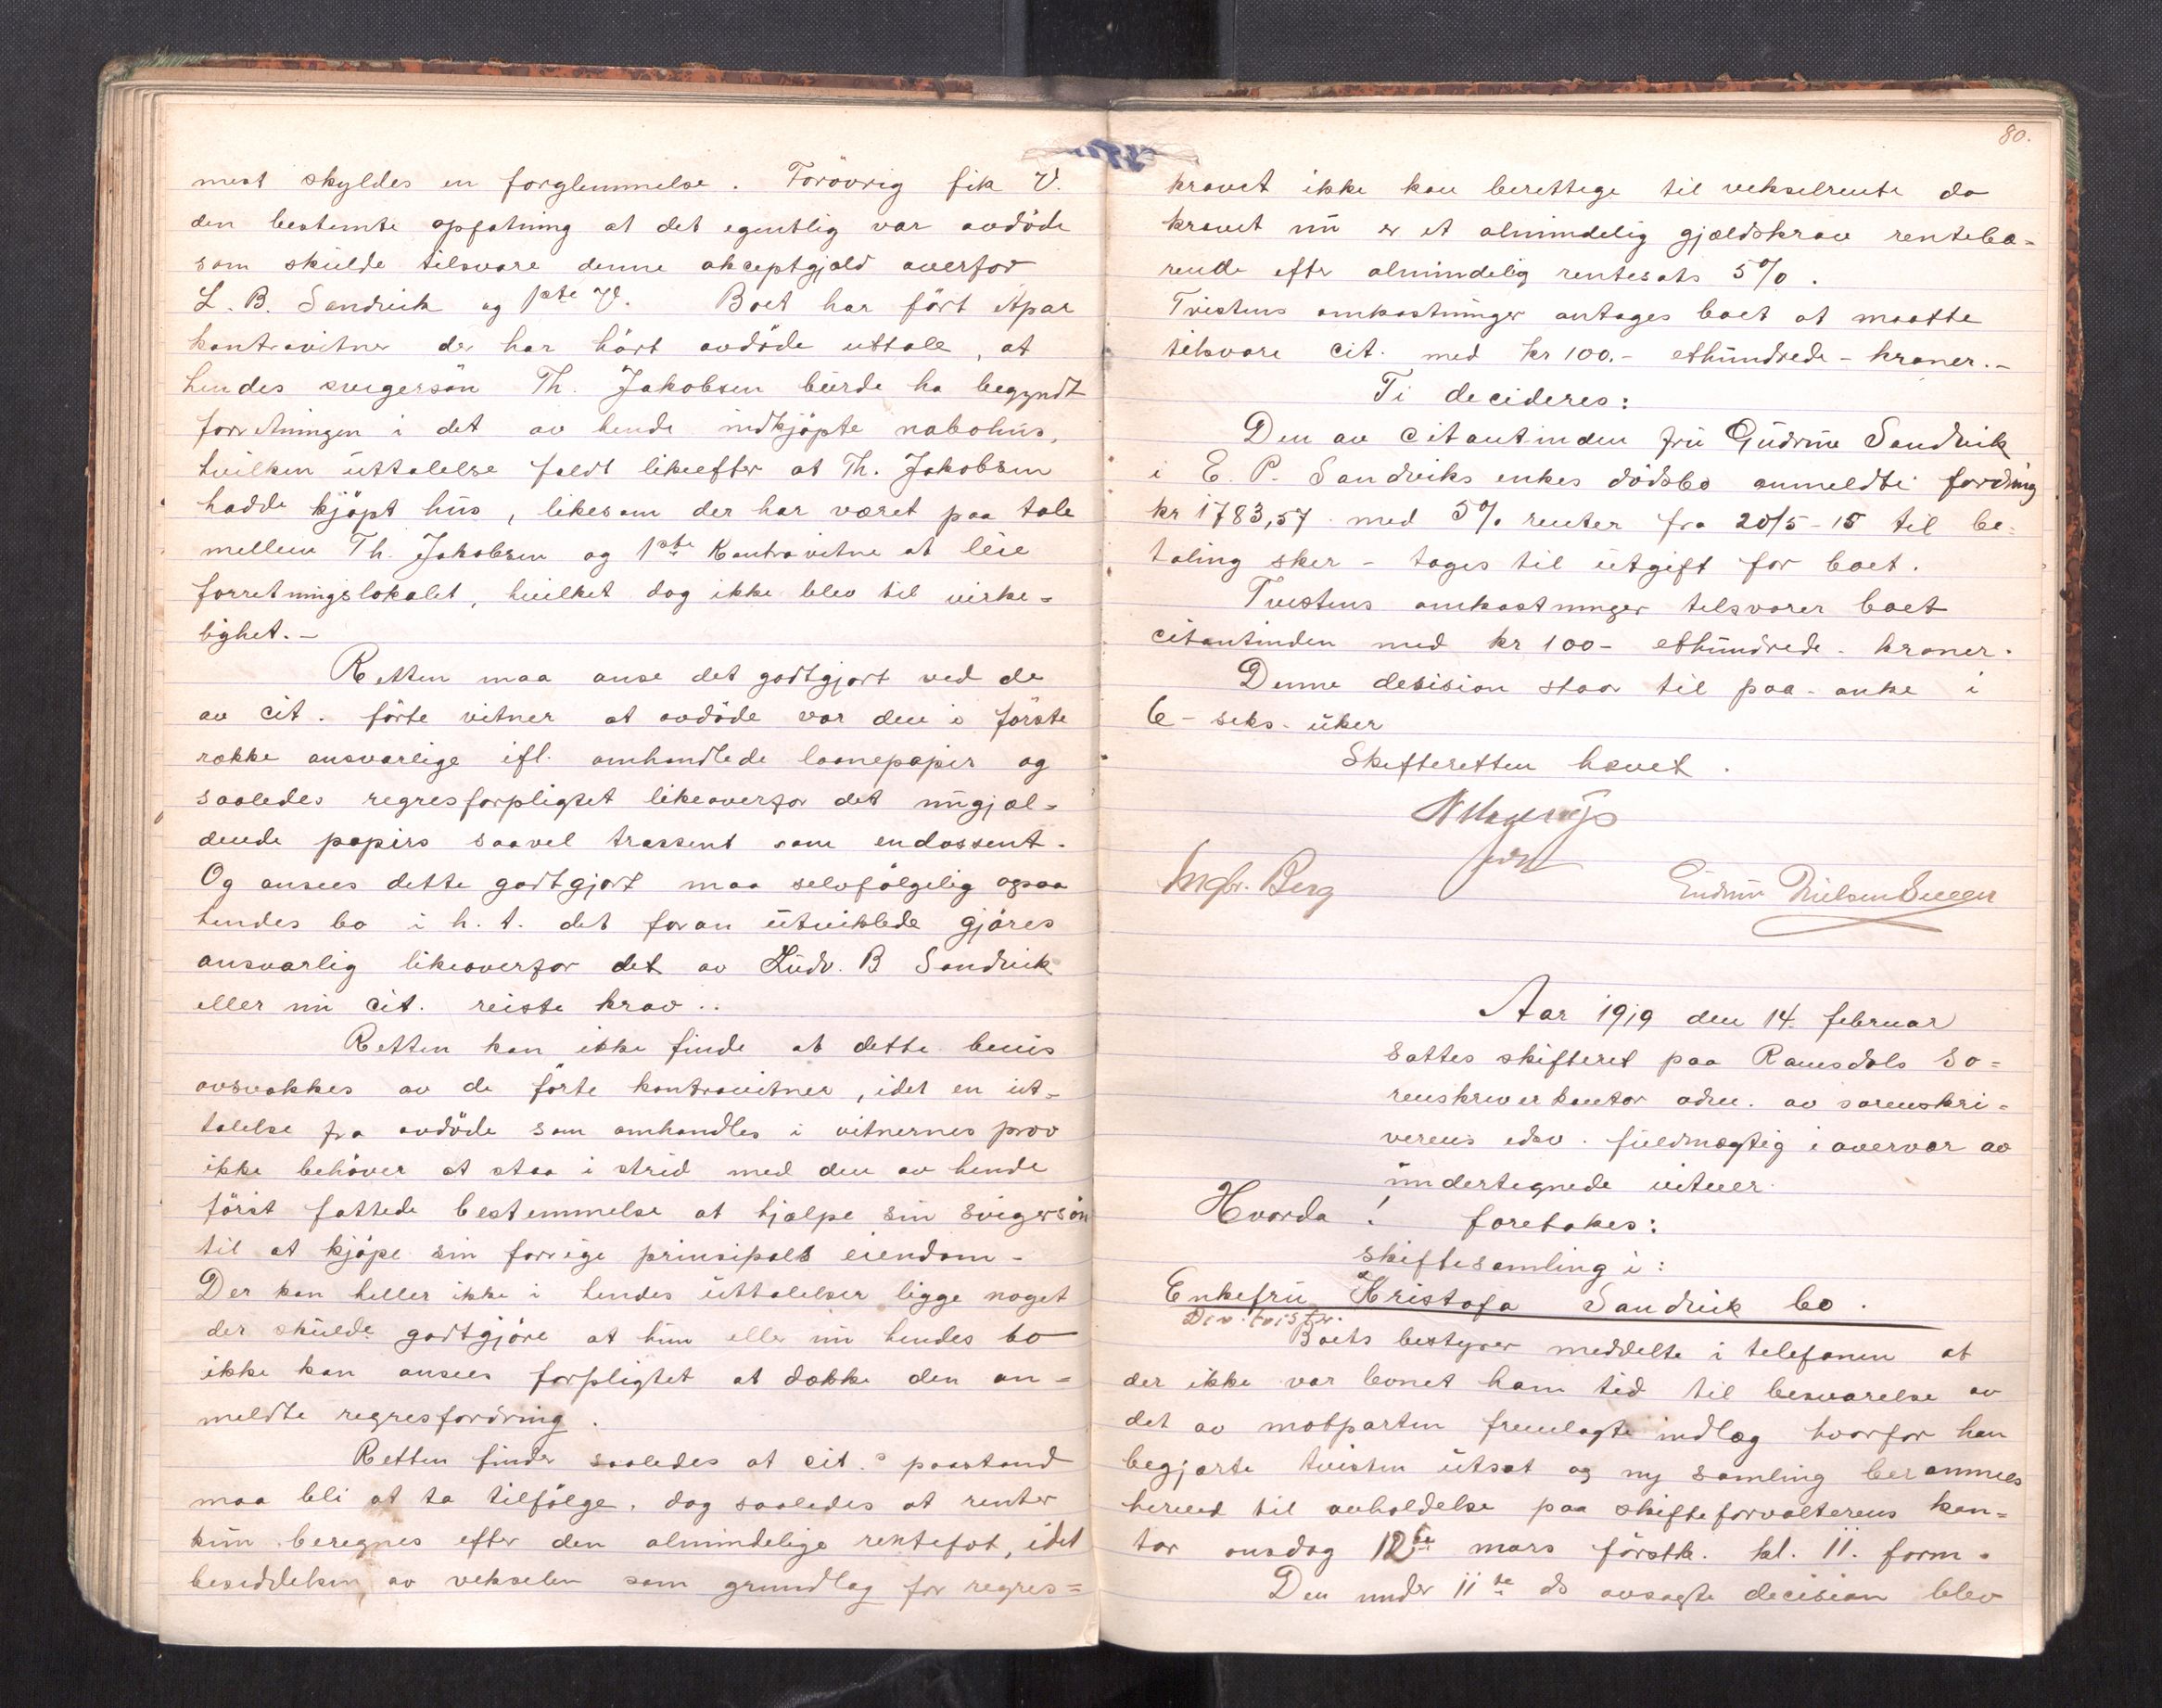 mest skyldes en forglemmelse. Forövrig fik V.
den bestemte opfatning at det egentlig var avdöde
som skulde tilsvare denne akceptgjæld overfor
L. B. Sandvik og 1ste V. Boet har fört et par
kontravitner der har hört avdöde uttale, at
hendes svigersön Th. Jakobsen burde ha begyndt
forretningen i det av hende indkjöpte nabohus,
hvilken uttalelse faldt likeefter at Th. Jakobsen
hadde kjöpt hus, likesom der har været paa tale
mellem Th. Jakobsen og 1ste Kontravitne at leie
forretningslokalet, hvilket dog ikke blev til virke-
lighet.-
Retten maa anse det godtgjort ved de
av cit. förte vitner at avdöde var den i förste
række ansvarlige ifl. omhandlede laanepapir og
saaledes regresforpligtet likeoverfor det nugjæl-
dende papirs saavel trassent som endossent.
Og ansees dette godtgjort maa selvfölgelig ogsaa
hendes bo i h. t. det foran utviklede gjöres
ansvarlig likeoverfor det av Ludv. B Sandvik
eller nu cit. reiste krav..
Retten kan ikke finde at dette bevis
avsvækkes av de förte kontravitner, idet en ut-
talelse fra avdöde som omhandles i vitnernes prov
ikke behöver at staa i strid med den av hende
först fattede bestemmelse at hjælpe sin svigersön
til at kjöpe sin forrige prinsipals eiendom-
Der kan heller ikke i hendes uttalelser ligge noget
der skulde godtgjöre at hun eller nu hendes bo
ikke kan ansees forpligtet at dække den an-
meldte regresfordring.
Retten finder saaledes at cit.s paastand
maa bli at ta tilfölge, dog saaledes at renter
kun beregnes efter den almindelige rentefot, idet
besiddelsen av vekselen som grundlag for regres=
80.
kravet ikke kan berettige til vekselrente da
kravet nu er et almindelig gjældskrav renteba-
rende efter almindelig rentesats 5%.
Tvistens omkostninger antages boet at maatte
tilsvare cit. med kr 100.- ethundrede- kroner.-
Ti decideres:
Den av citantinden fru Gudrun Sandvik
i E. P. Sandviks enkes dödsbo anmeldte fordring
kr 1783,57 med 5% renter fra 20/5-15 til be-
taling sker - tages til utgift for boet.
Tvistens omkostninger tilsvarer boet
citantinden med kr 100- ethundrede- kroner.
Denne desision staar til paa-anke i
6- seks- uker
Skifteretten hævet.
Ingbr. Berg
Gudrun Nielsen
Aar 1919 den 14. februar
sattes skifteret paa Romsdals so=
renskriverkontor adm. av sorenskri-
verens edsv. fuldmægtig i overvær av
undertegnede vitner.
Hvorda! foretokes:
skiftesamling i:
Enkefru Kristofa Sandvik bo.
Div. tvister.
Boets bestyrer meddelte i telefonen at
der ikke var levnet ham tid til besvarelse av
det av motparten fremlagte indlæg hvorfor han
begjærte tvisten utsat og ny samling berammes
herved til avholdelse paa skifteforvalterens kon=
tor onsdag 12te mars förstk. kl. 11. form.
Den under 11te ds avsagte decision blev